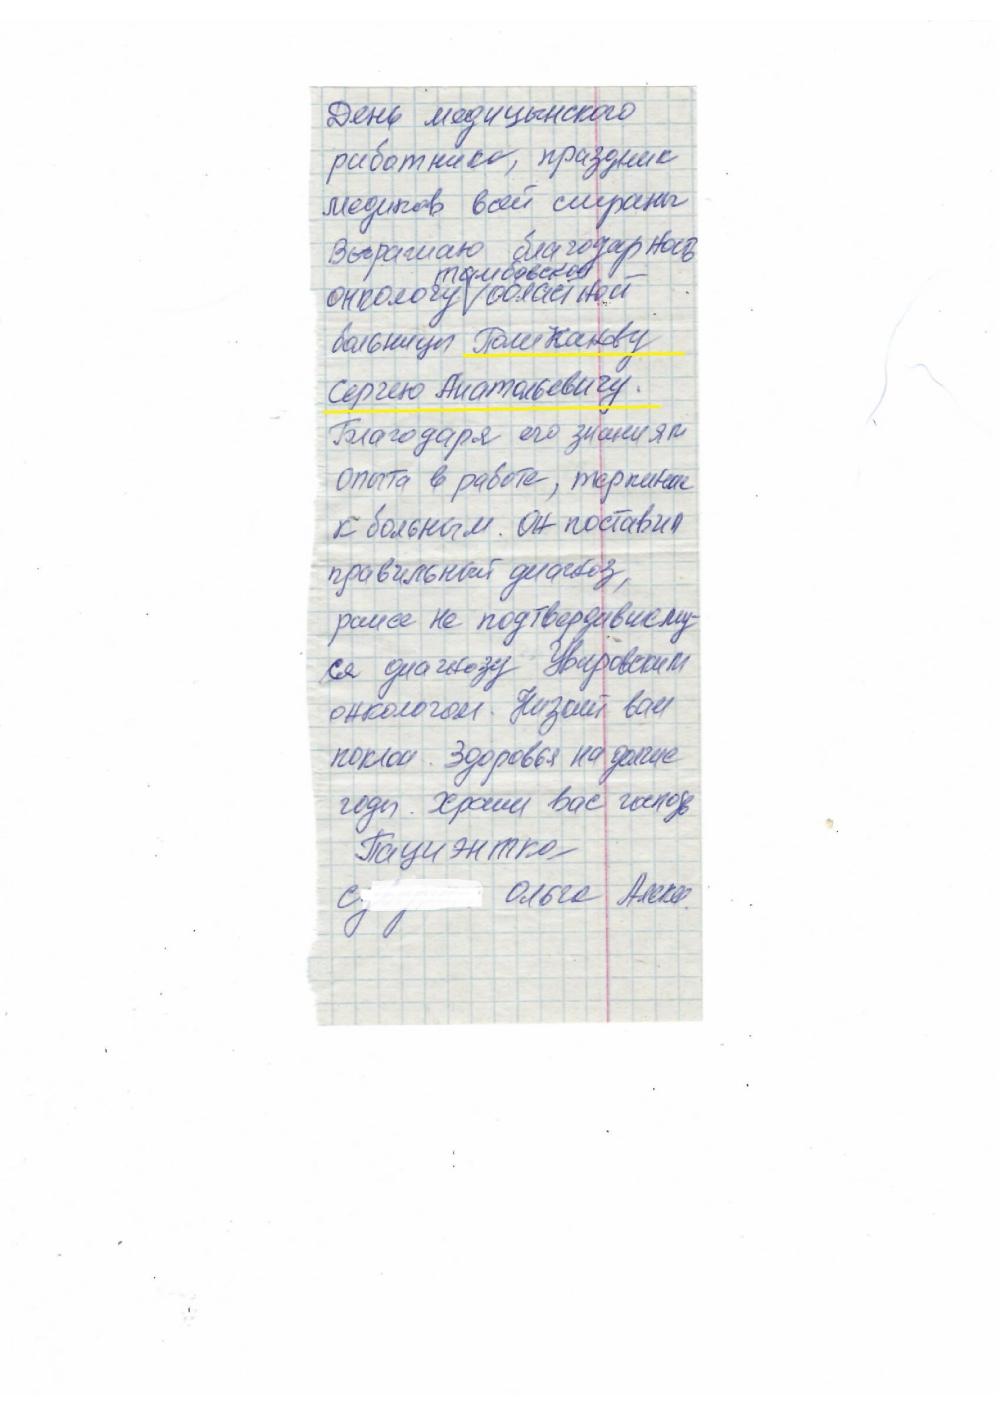 День медицынского
работника, праздник
медиков всей страны
Выражаю благодарность
тамбовской
онкологу областной
больницы Поликанову
Сергею Анатольевичу.
Благодаря его знаниям
опыта в работе, терпение
к больным. Он поставил
правильный диагноз,
ранее не подтвердившему-
ся диагнозу Уваровским
онкологом. Низкий вам
поклон. Здоровья на долгие
годы. Храни вас господь
Пациэнтка
С. Ольга Алекс.